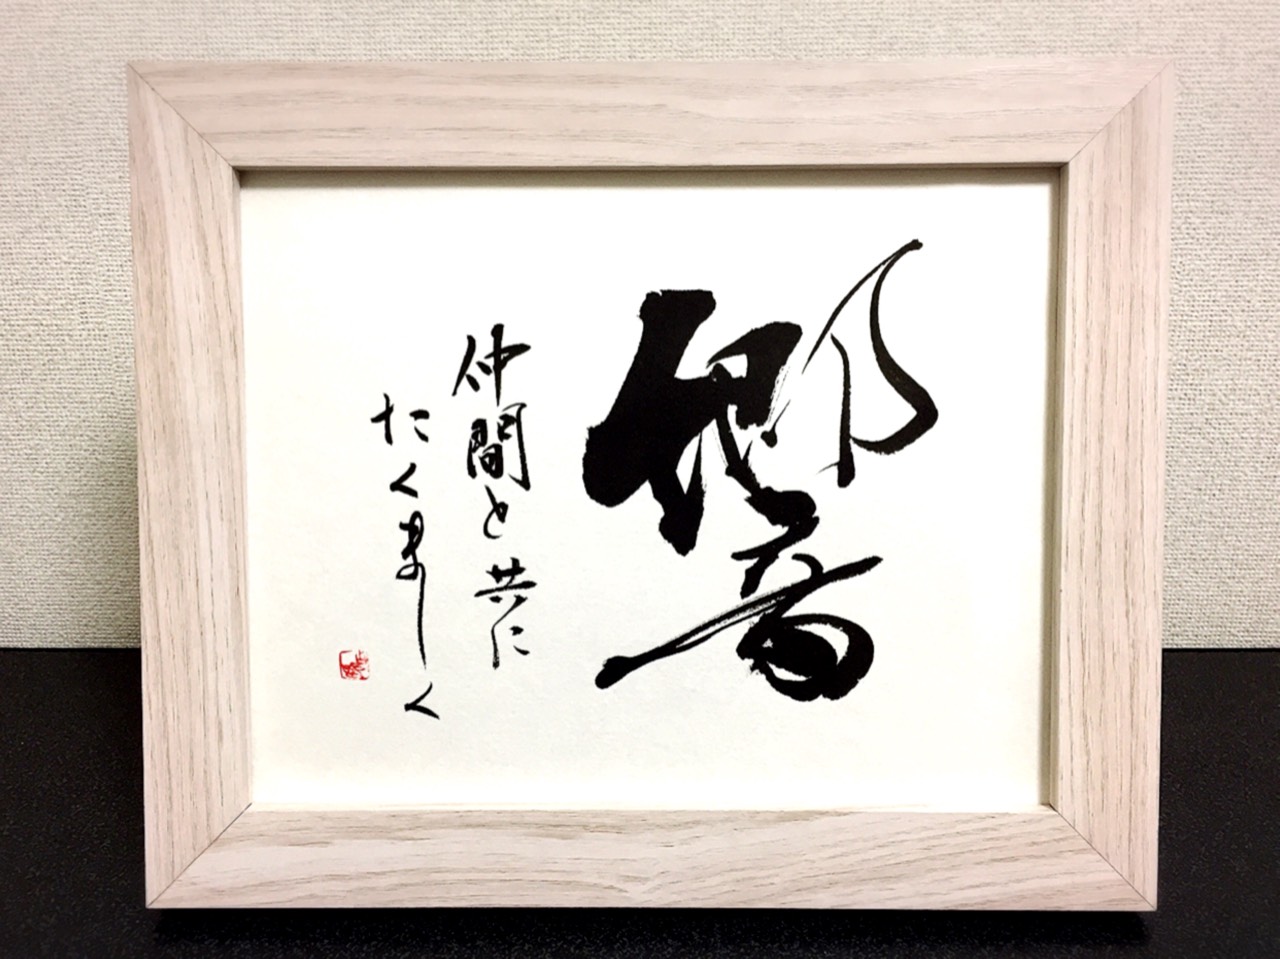 響
仲間と共に
たくましく